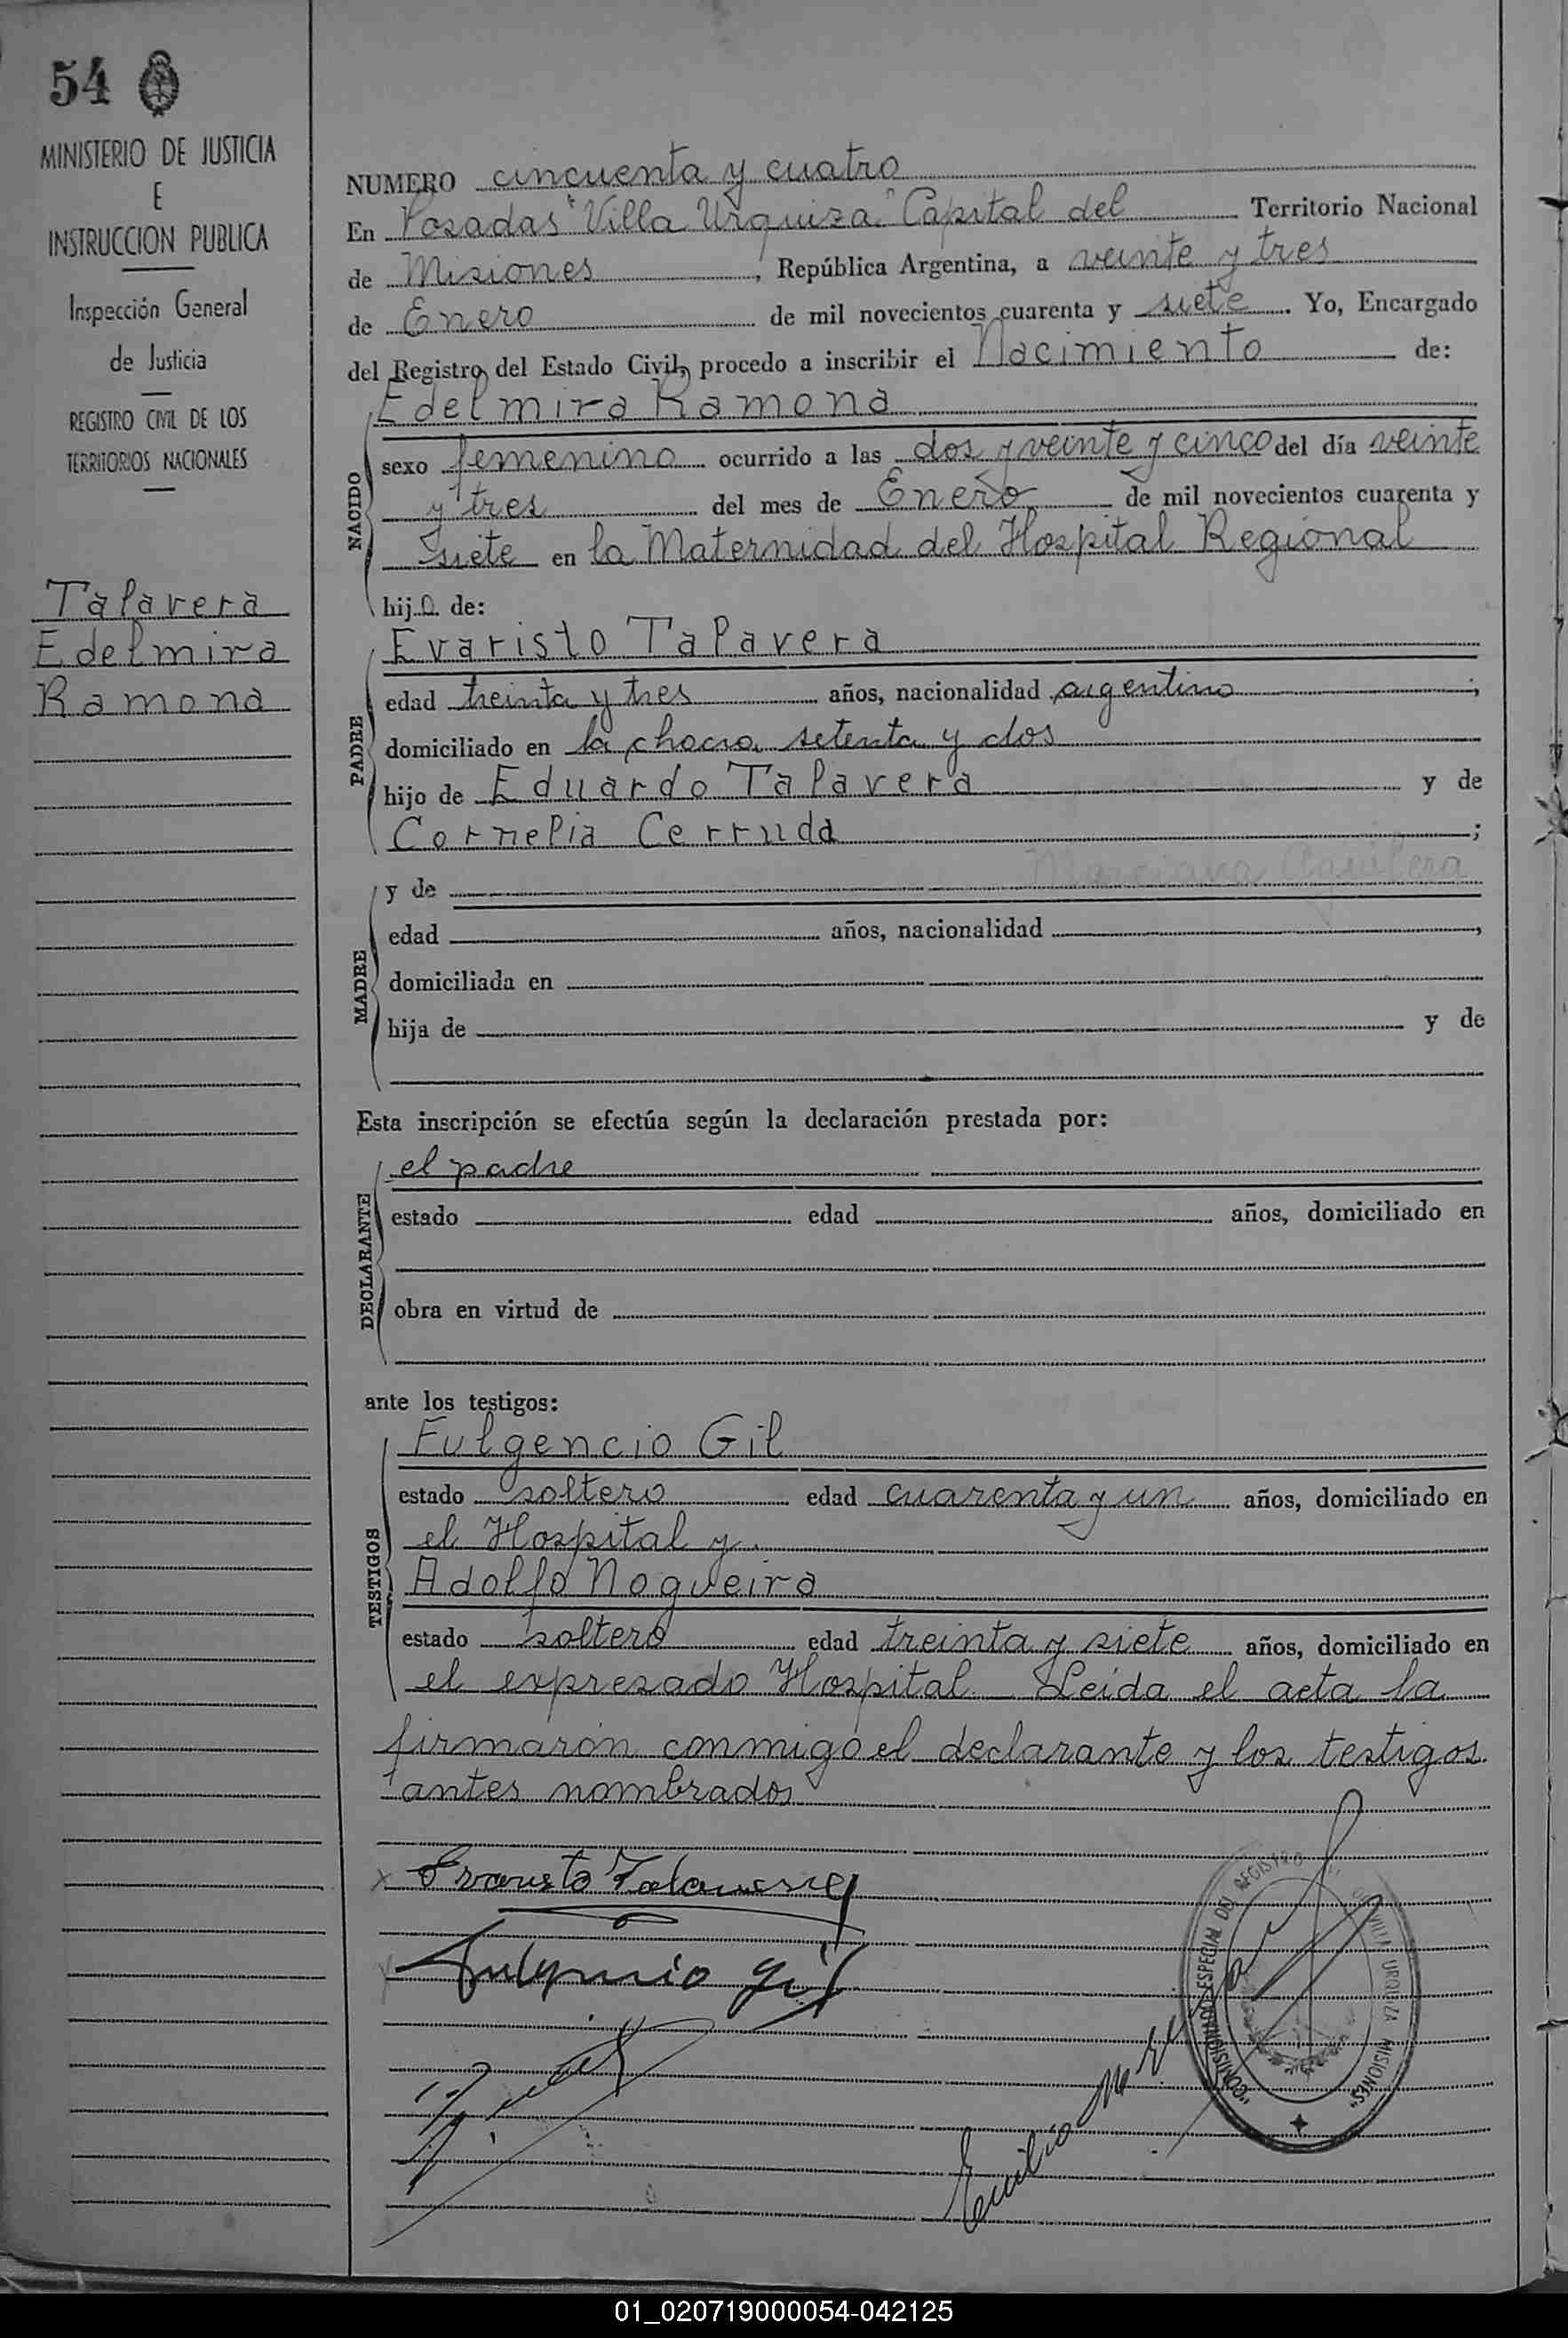 54
MINISTERIO DE JUSTICIA
E
INSTRUCCION PUBLICA
Inspección General
de Justicia
REGISTRO CIVIL DE LOS
TERRITORIOS NACIONALES
Talavera
Edelmira
Ramona
NUMERO cincuenta y cuatro
En Posadas "Villa Urquiza" Capital del Territorio Nacional
de Misiones, República Argentina, a veinte y tres
de Enero de mil novecientos cuarenta y siete. Yo, Encargado
del Registro del Estado Civil, procedo a inscribir el Nacimiento de:
Edelmira Ramona
NACIDO
sexo femenino ocurrido a las dos y veinte y cinco del día veinte
y tres del mes de Enero de mil novecientos cuarenta y
siete en la Maternidad del Hospital Regional
hija de:
PADRE
Evaristo Talavera
edad treinta y tres años, nacionalidad argentino;
domiciliado en la chacra setenta y dos
hijo de Eduardo Talavera y de
Cornelia Cerruda;
Marciana Aguilera
MADRE
y de
edad años, nacionalidad,
domiciliada en
hija de y de
Esta inscripción se efectúa según la declaración prestada por:
DECLARANTE
el padre
estado edad años, domiciliado en
obra en virtud de
ante los testigos:
TESTIGOS
Fulgencio Gil
estado soltero edad cuarenta y un años, domiciliado en
el Hospital y
Adolfo Nogueira
estado soltero edad treinta y siete años, domiciliado en
el expresado Hospital. Leída el acta la
firmaron conmigo el declarante y los testigos
antes nombrados
x Evaristo Talavera
x Fulgencio Gil
Emilio
"COMISIONADO ESPECIAL DEL REGISTRO VILLA URQUIZA MISIONES"
01_020719000054-042125